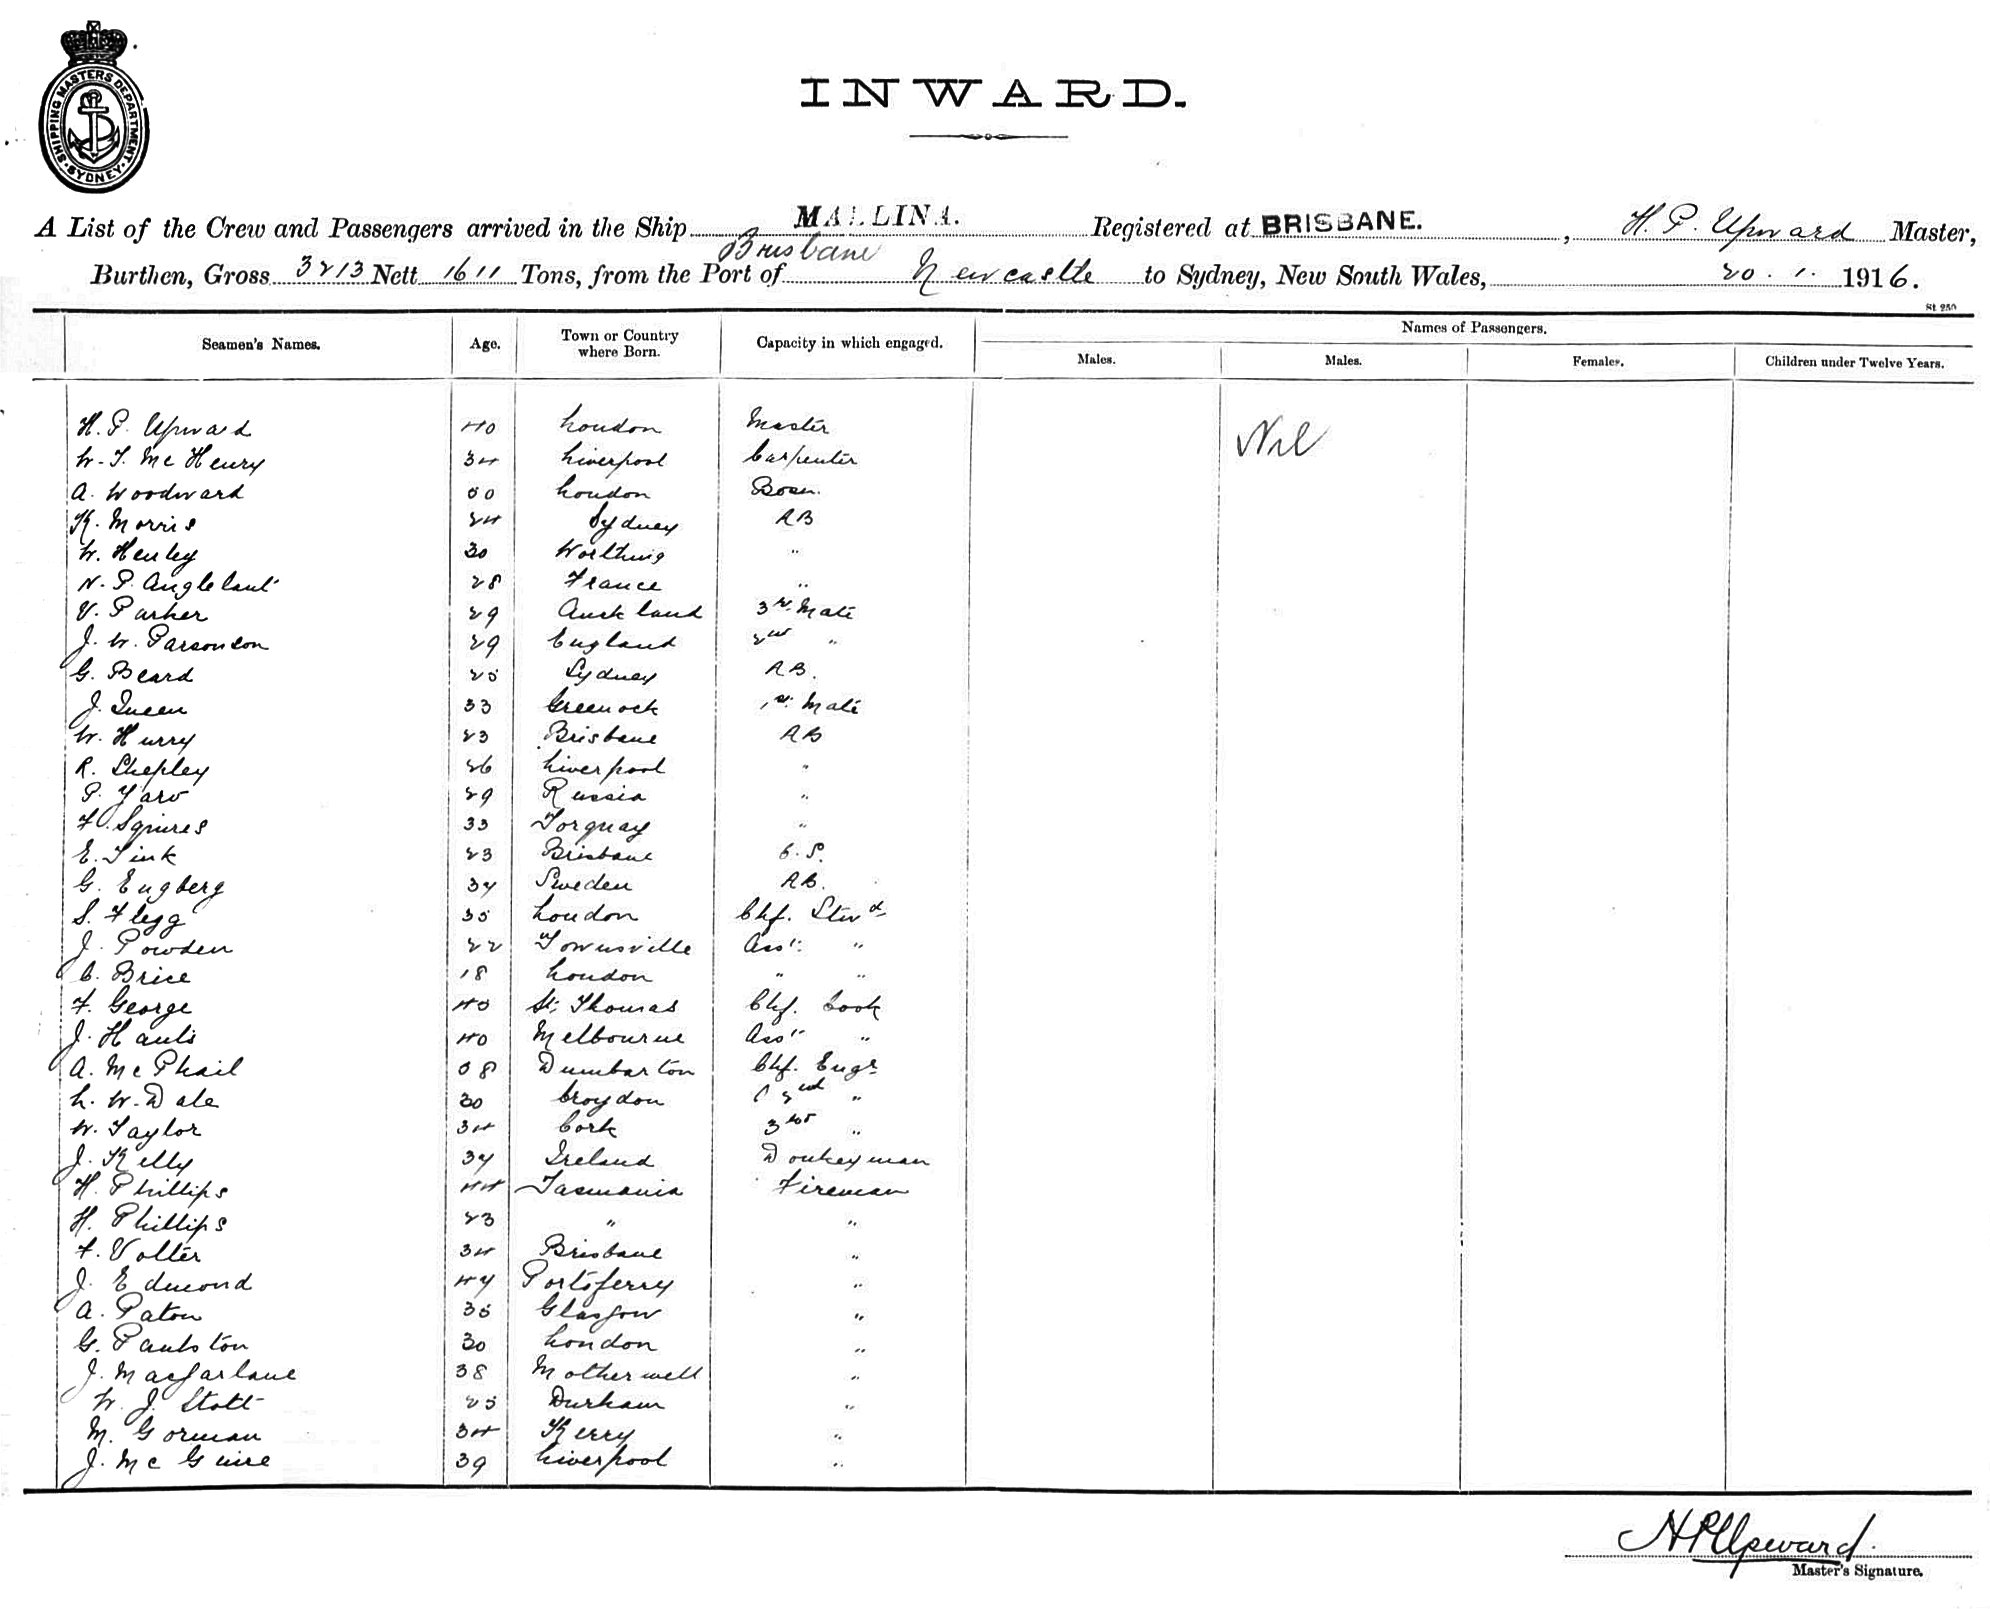 SHIPPING MASTERS DEPARTMENT. SYDNEY
INWARD.
A List of the Crew and Passengers arrived in the Ship MALLINA. Registered at BRISBANE. , H. P. Upward Master,
Brisbane
Burthen, Gross 3213 Nett 1611 Tons, from the Port of Newcastle to Sydney, New South Wales, 20. 1. 1916.
St 250
Seamen's Names. Age. Town or Country where Born. Capacity in which engaged. Names of Passengers.
Males. Males. Females. Children under Twelve Years.
H. P. Upward 40 London Master Nil
W. J. McHenry 34 Liverpool Carpenter
A. Woodward 50 London Bosn.
K. Morris 24 Sydney AB
W. Henley 30 Worthing "
N. P. 28 France "
V. Parker 29 Auckland 3rd Mate
J. W. Parsonson 29 England 2nd "
G. Beard 25 Sydney AB.
J. Queen 33 Greenock 1st Mate
W. Hurry 23 Brisbane AB
R. Shepley 26 Liverpool "
P. Yarv 29 Russia "
F. Squires 33 Torquay "
E. Tink 23 Brisbane O.S.
G. Engberg 37 Sweden AB.
S. Flegg 35 London Chf. Stwd
J. Powden 22 Townsville Asst. "
C. Brice 18 London " "
F. George 40 St. Thomas Chf. Cook
J. 40 Melbourne Asst "
A. McPhail 58 Dumbarton Chf. Engr
L. W. Dale 30 Croydon 2nd "
W. Taylor 34 Cork 3rd "
J. Kelly 37 Ireland Donkeyman
H. Phillips 44 Tasmania Fireman
H. Phillips 23 " "
F. Volter 34 Brisbane "
J. Edmond 47 Portaferry "
A. Paton 35 Glasgow "
G. 30 London "
J. Macfarlane 38 Motherwell "
W. J. Stott 25 Durham "
M. Gorman 34 Kerry "
J. McGuire 39 Liverpool "
H P Upward.
Master's Signature.